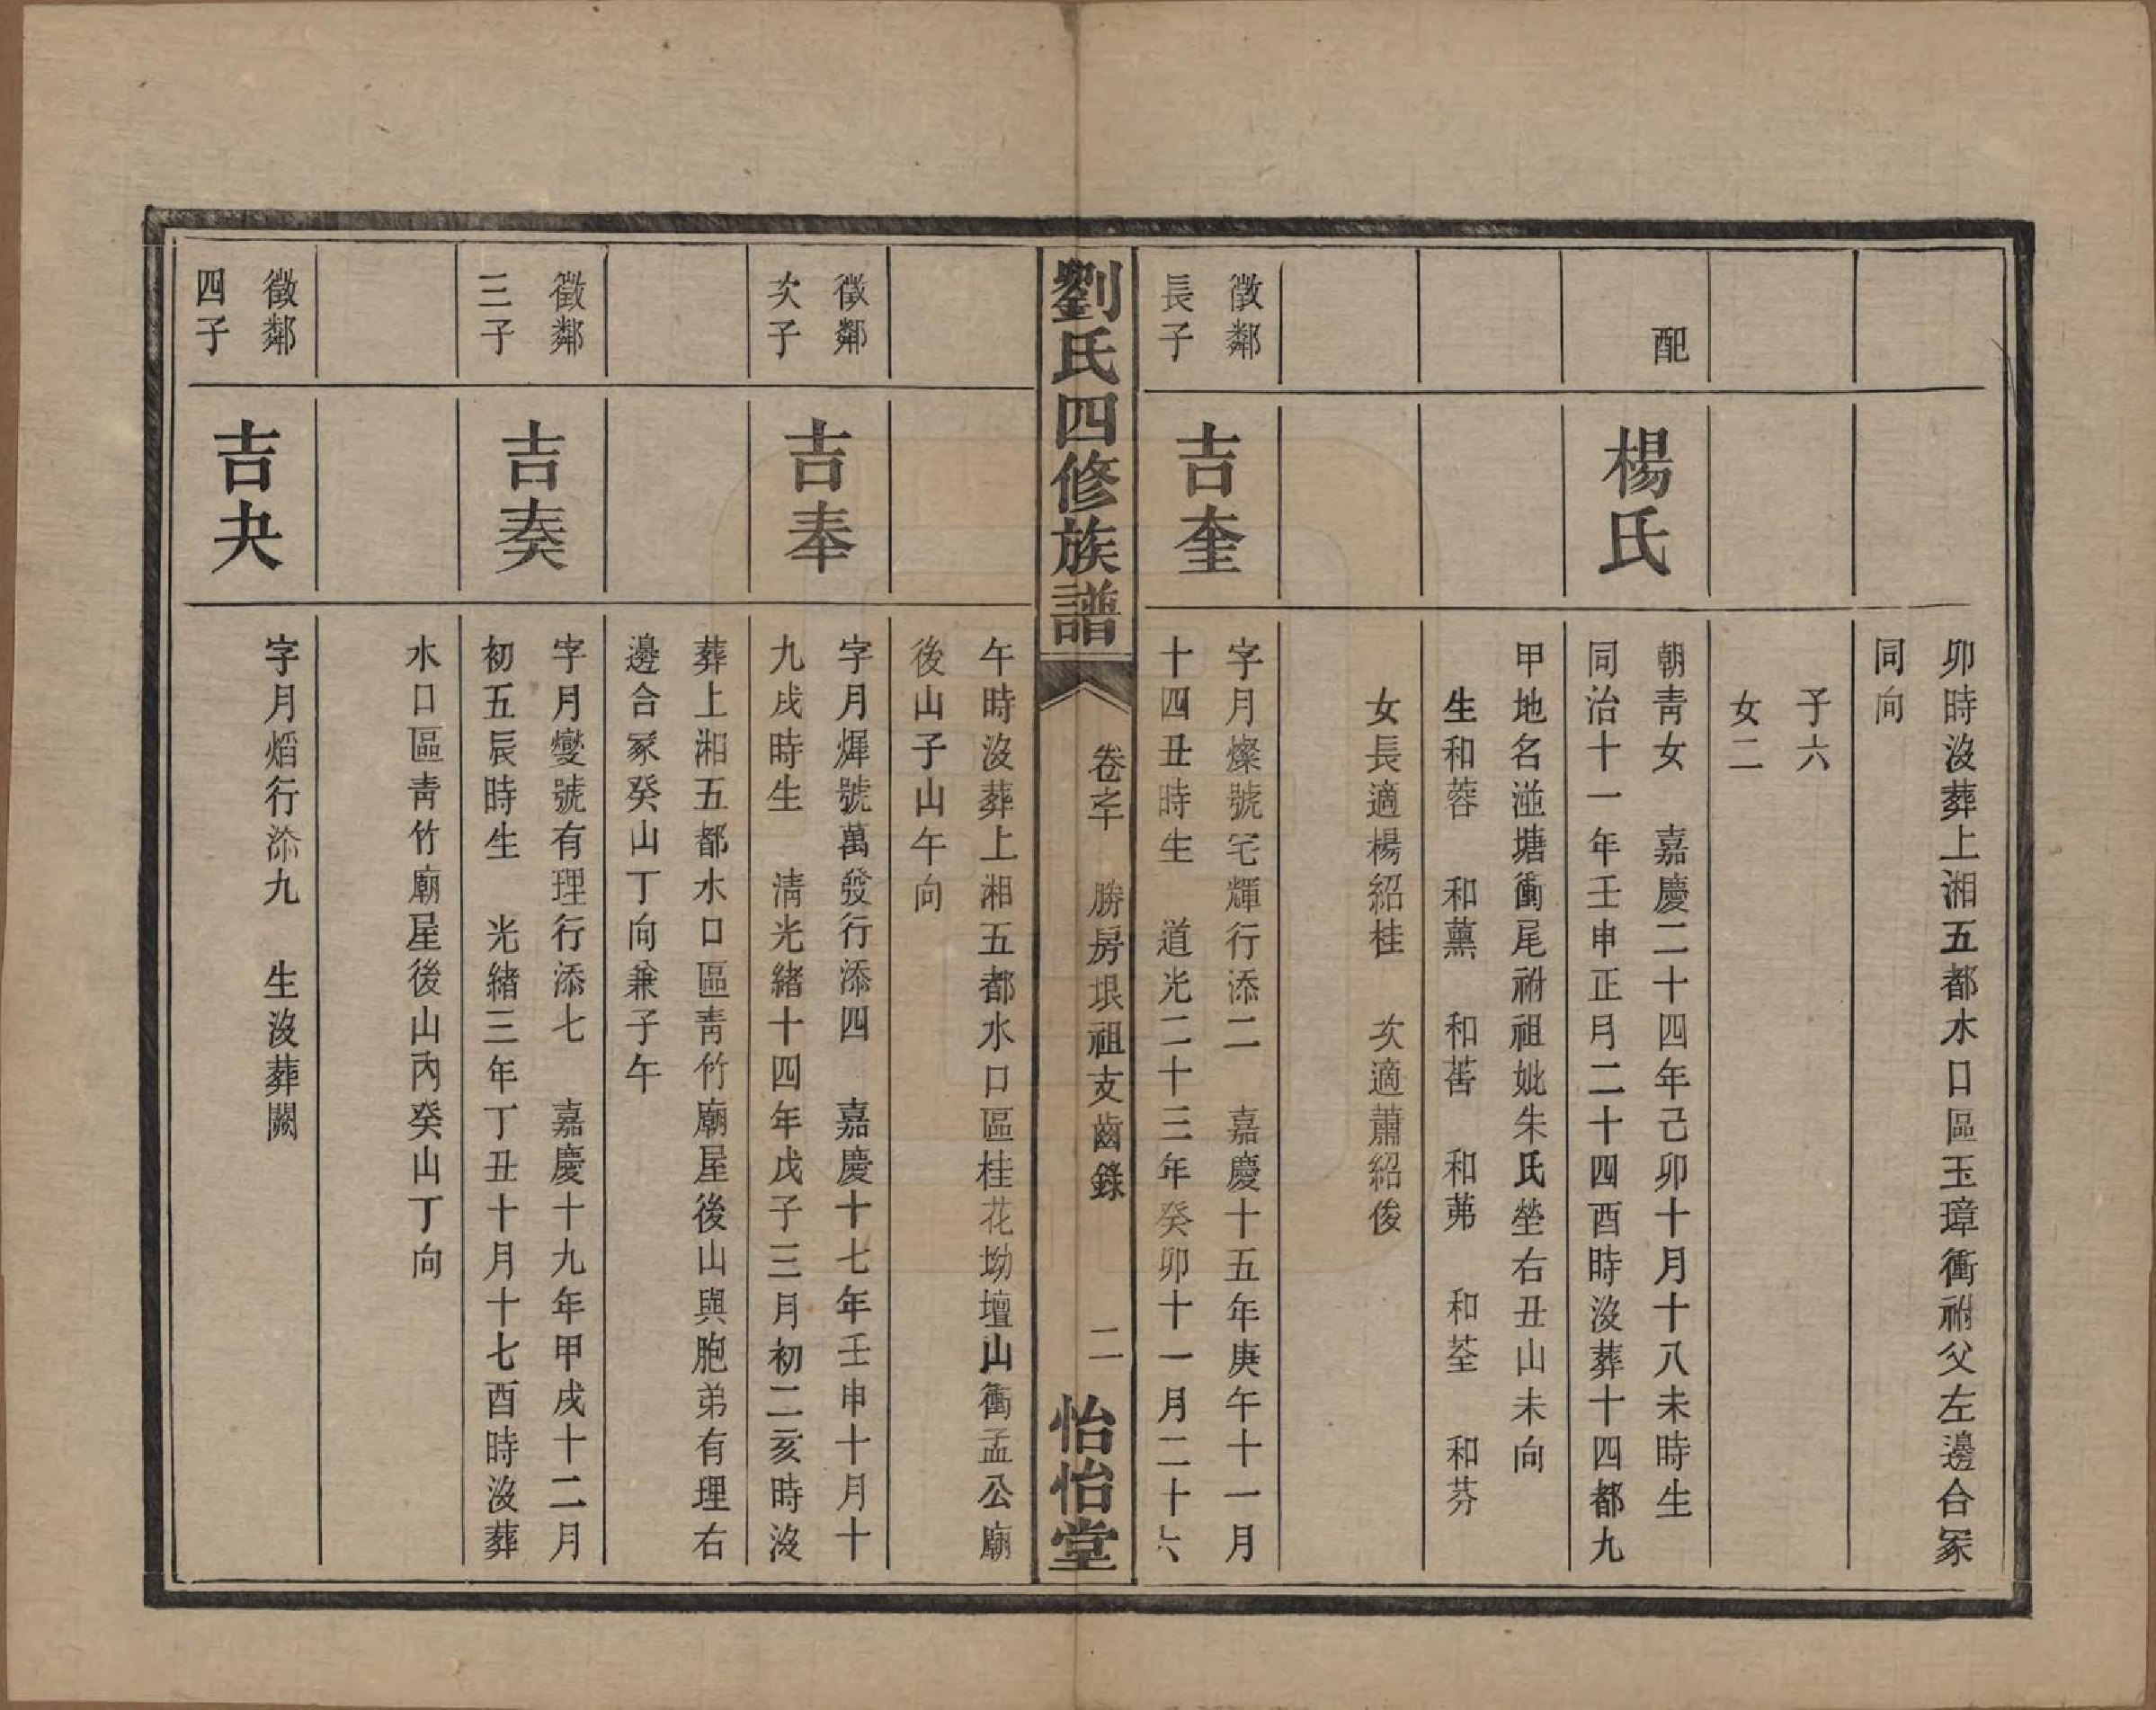 卯時沒葬上湘五都水口區玉璋衝祔父左邊合冢
同向
子六
女二
配
楊氏
朝靑女　嘉慶二十四年己卯十月十八未時生
同治十一年壬申正月二十四酉時沒葬十四都九
甲地名塘衝尾祔祖妣朱氏塋右丑山未向
生和蓉　和薰　和　和茀　和荃　和芬
女長適楊紹桂　次適蕭紹俊
徵鄰
長子
吉奎
字月燦號宅輝行添二　嘉慶十五年庚午十一月
十四丑時生　道光二十三年癸卯十一月二十六
劉氏四修族譜
卷之十　勝房垠祖支齒錄　二
怡怡堂
午時沒葬上湘五都水口區桂花坳壇山衝孟公廟
後山子山午向
徵鄰
次子
吉奉
字月燀號萬發行添四　嘉慶十七年壬申十月十
九戌時生　清光緒十四年戊子三月初二亥時沒
葬上湘五都水口區靑竹廟屋後山與胞弟有理右
邊合冢癸山丁向兼子午
徵鄰
三子
吉奏
字月燮號有理行添七　嘉慶十九年甲戌十二月
初五辰時生　光緒三年丁丑十月十七酉時沒葬
水口區靑竹廟屋後山內癸山丁向
徵鄰
四子
吉夬
字月熖行添九　生沒葬闕